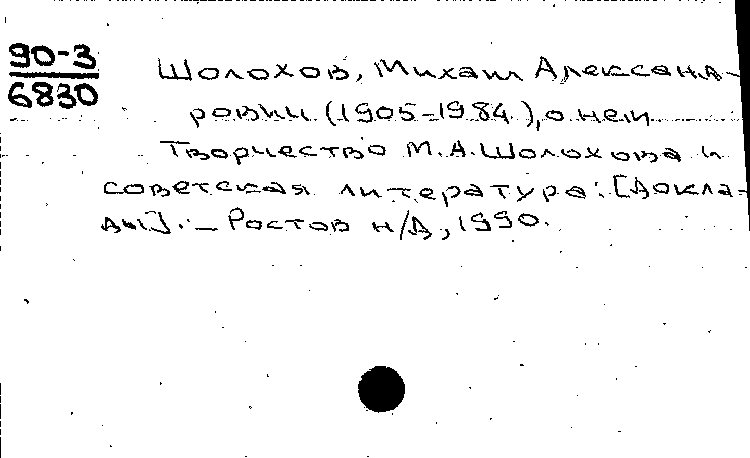 90-3
6830
Шолохов, Михаил Александ-
рович (1905-1984), о нем
Творчество М.А. Шолохова и
советская литература: [Докла-
ды]. — Ростов н/Д, 1990.